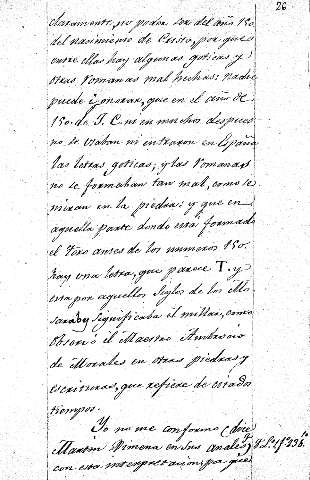 26
claramente, no poder ser del año 150
del nacimiento de Cristo, por que
entre ellas hay algunas goticas y
otras romanas mal hechas: nadie
puede ignorar, que en el año de
150. de J. C. ni en muchos despues
no se usaban ni entraron en España
las letras goticas; y las romanas
no se formaban tan mal, como se
miran en la piedra: y que en
aquella parte donde está formado
el antes de los numeros 150.
hay una letra, que parece T. y
esta por aquellos Siglos de los Mo
sarabes significaba el millar, como
observó el Maestro Ambrosio
de Morales en otras piedras y
escrituras, que refiere de estados
tiempos.
Yo no me conformo (dice
Martin Ximena en sus anales
con esta interpretacion, por que